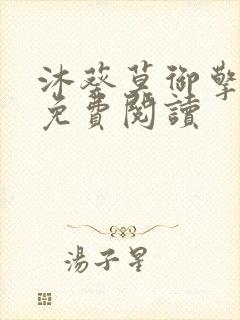 沐葵草御擎
免費閱讀
湯子星